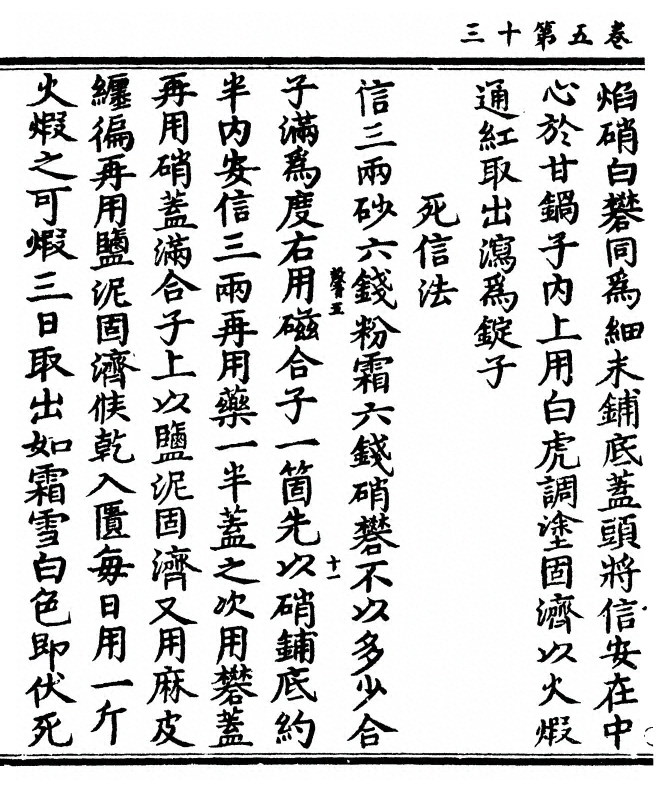 三十第五卷
焰硝白礬同爲細末鋪底蓋頭將信安在中
心於甘鍋子內上用白虎調塗固濟以火煆
通紅取出瀉爲錠子
死信法
信三兩砂六錢粉霜六錢硝礬不以多少合
子滿爲度右用磁合子一箇先以硝鋪底約
半內安信三兩再用藥一半蓋之次用礬蓋
再用硝蓋滿合子上以鹽泥固濟又用麻皮
纏徧再用鹽泥固濟候乾入匱每日用一斤
火煆之可煆三日取出如霜雪白色即伏死
十一